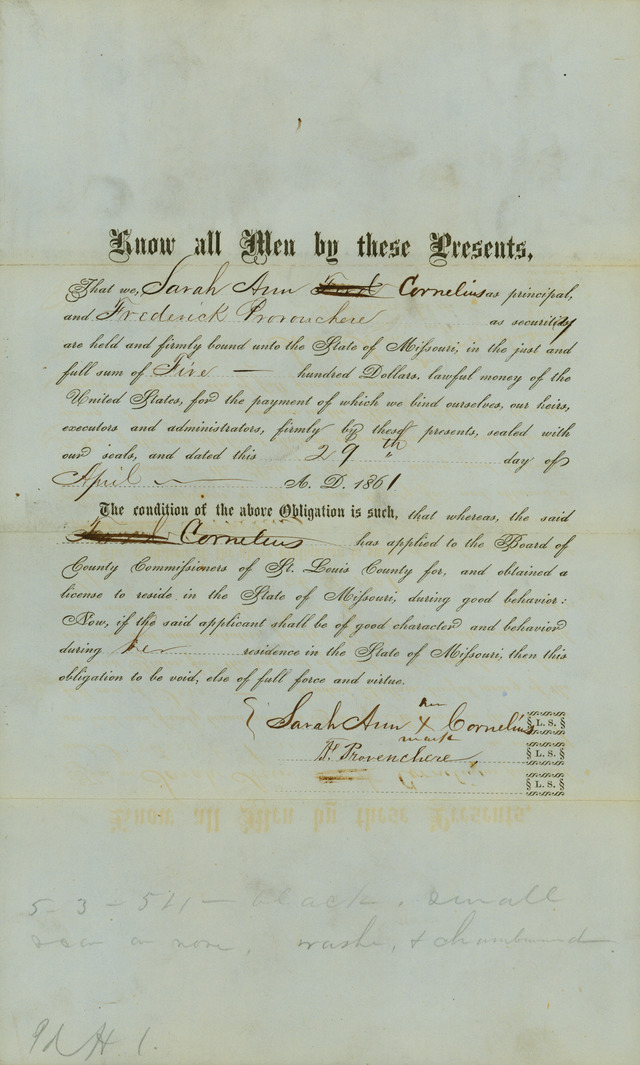 Know all Men by these Presents,
That we, Sarah Ann Cornelius as principal,
and Frederick Provenchere as security
are held and firmly bound unto the State of Missouri, in the just and
full sum of Five — hundred Dollars, lawful money of the
United States, for the payment of which we bind ourselves, our heirs,
executors and administrators, firmly by these presents, sealed with
our seals, and dated this 29th day of
April A. D. 1861
The condition of the above Obligation is such, that whereas, the said
Cornelius has applied to the Board of
County Commissioners of St. Louis County for, and obtained a
license to reside in the State of Missouri, during good behavior:
Now, if the said applicant shall be of good character and behavior
during her residence in the State of Missouri, then this
obligation to be void, else of full force and virtue.
her
Sarah Ann X Cornelius L. S.
mark
F. Provenchere L. S.
L. S.
5-3- black. small
scar on nose, washer, &